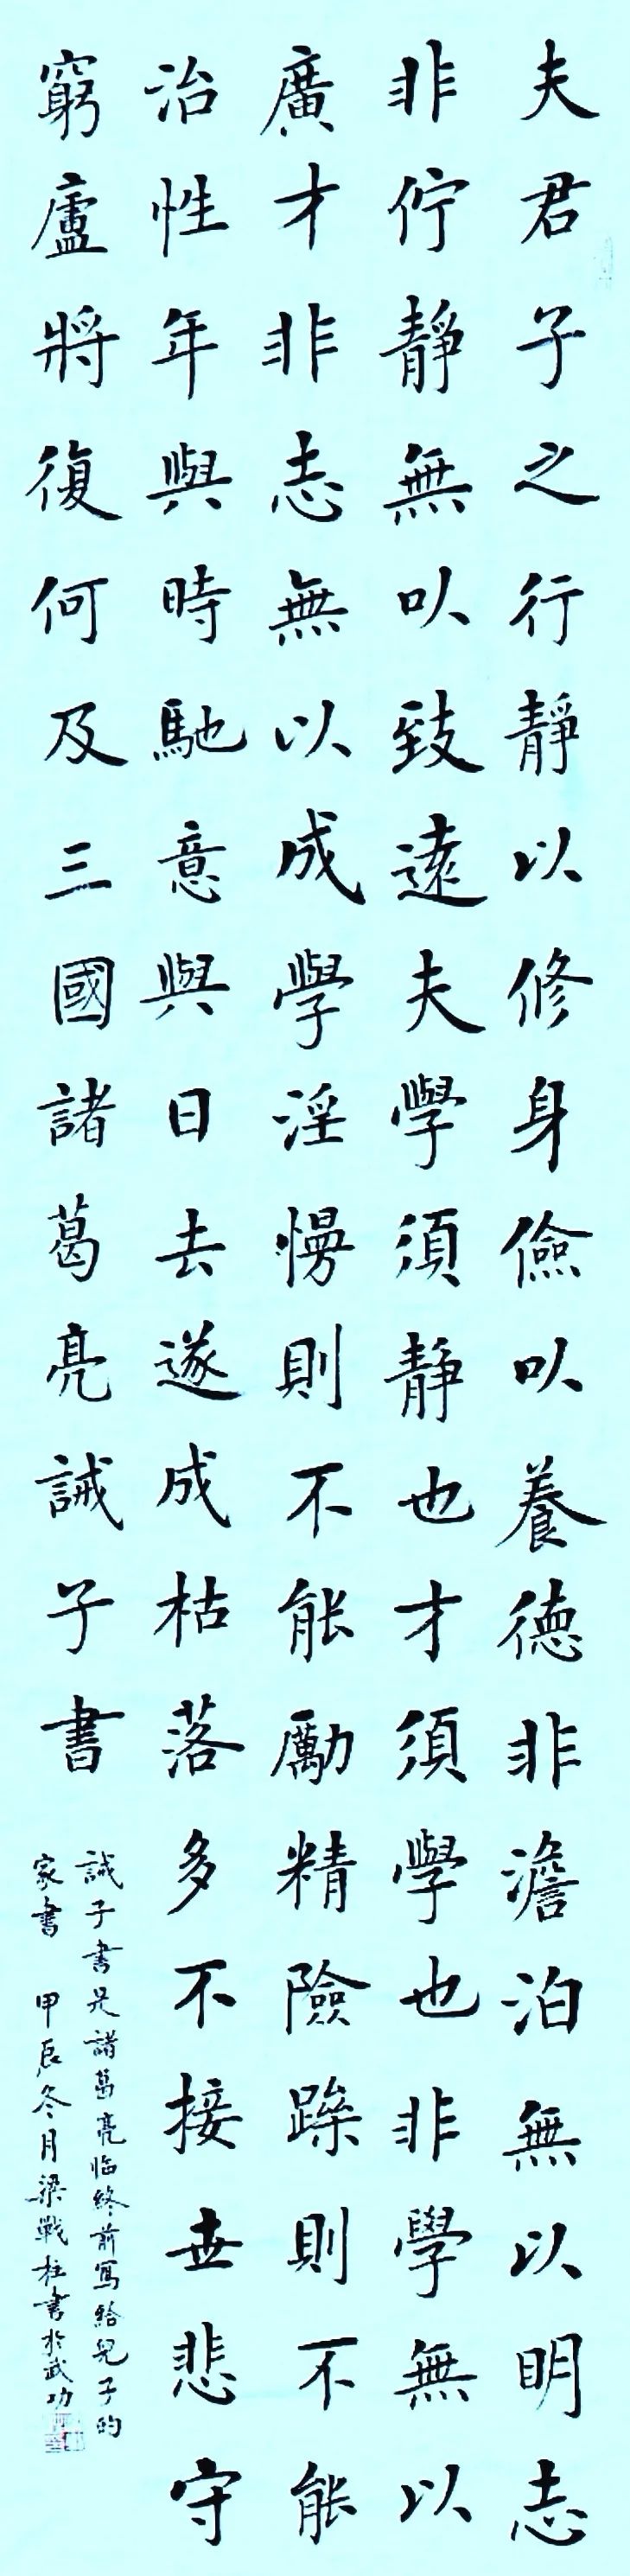 夫君子之行靜以修身儉以養德非澹泊無以明志
非佇靜無以致遠夫學須靜也才須學也非學無以
廣才非志無以成學淫慢則不能勵精險躁則不能
治性年與時馳意與日去遂成枯落多不接世悲守
窮廬將復何及三國諸葛亮誡子書
誡子書是諸葛亮临終前寫給兒子的
家書 甲辰冬月梁戰柱書於武功